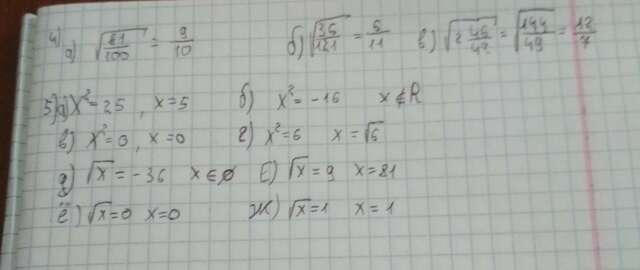 4) а) √81/100 = 9/10 б) √36/121 = 6/11 в) √2 46/49 = √144/49 = 12/7
5) а) x² = 25, x = 5 б) x² = -16 x ∉ R
в) x² = 0, x = 0 г) x² = 6 x = √6
д) √x = -36 x ∈ ∅ Е) √x = 9 x = 81
ё) √x = 0 x = 0 Ж) √x = 1 x = 1